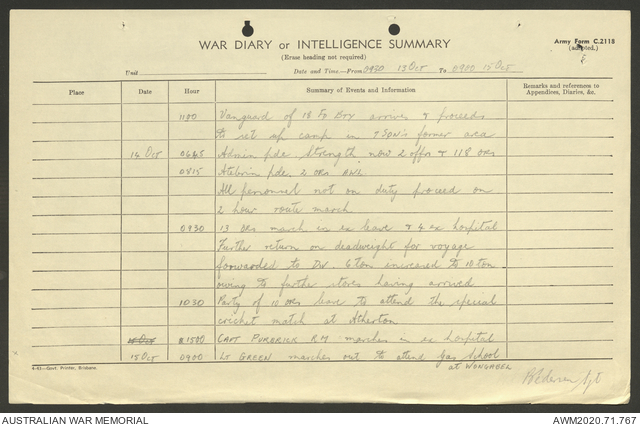 WAR DIARY or INTELLIGENCE SUMMARY
Army Form C.2118
(adapted.)
(Erase heading not required)
Unit
Date and Time.—From 0930 13 Oct To 0900 15 Oct
Place Date Hour Summary of Events and Information Remarks and references to
Appendices, Diaries, &c.
1130 Vanguard of 18 Fd Bty arrives & proceeds
to set up camp in 7 SON's former area
14 Oct 0645 Admin pde. Strength now 2 offrs & 118 ORs
0815 Atebrin pde. 2 ORs AWL
All personnel not on duty proceed on
2 hour route march
0930 13 ORs march in ex leave & 4 ex hospital
Further return on deadweight for voyage
forwarded to Div. 6 ton increased to 10 ton
owing to further stores having arrived
1030 Party of 10 ORs leave to attend the special
cricket match at Atherton
15 Oct 1500 CAPT PURBRICK RM marches in ex hospital
15 Oct 0900 Lt GREEN marches out to attend Gas School
at WONGABEL
4-43—Govt. Printer, Brisbane.
AUSTRALIAN WAR MEMORIAL
AWM2020.71.767